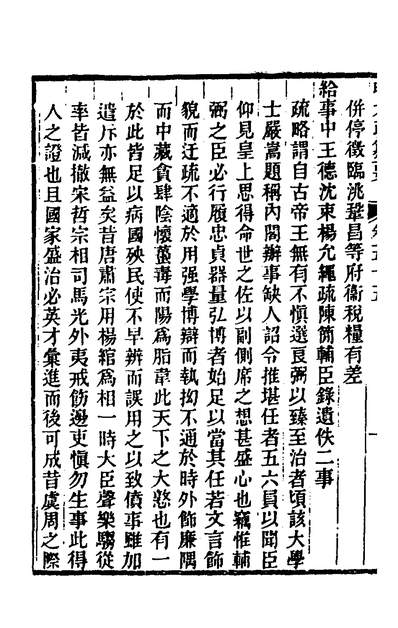 併停徵臨洮鞏昌等府衞稅糧有差
給事中王德沈束楊允繩疏陳簡輔臣錄遺佚二事
疏略謂自古帝王無有不愼選良弼以臻至治者頃該大學
士嚴嵩題稱內閣辦事缺人詔令推堪任者五六員以聞臣
仰見皇上思得命世之佐以副側席之想甚盛心也竊惟輔
弼之臣必行履忠貞器量弘博者始足以當其任若文言飾
貌而迂疏不適於用强學博辯而執拗不通於時外飾廉隅
而中藏貪肆陰懷蠆毒而陽爲脂韋此天下之大憝也有一
於此皆足以病國殃民使不早辨而誤用之以致僨事雖加
遣斥亦無益矣昔唐肅宗用楊綰爲相一時大臣聲樂騶從
率皆減撤宋哲宗相司馬光外夷戒飭邊吏愼勿生事此得
人之證也且國家盛治必英才彙進而後可成昔虞周之際